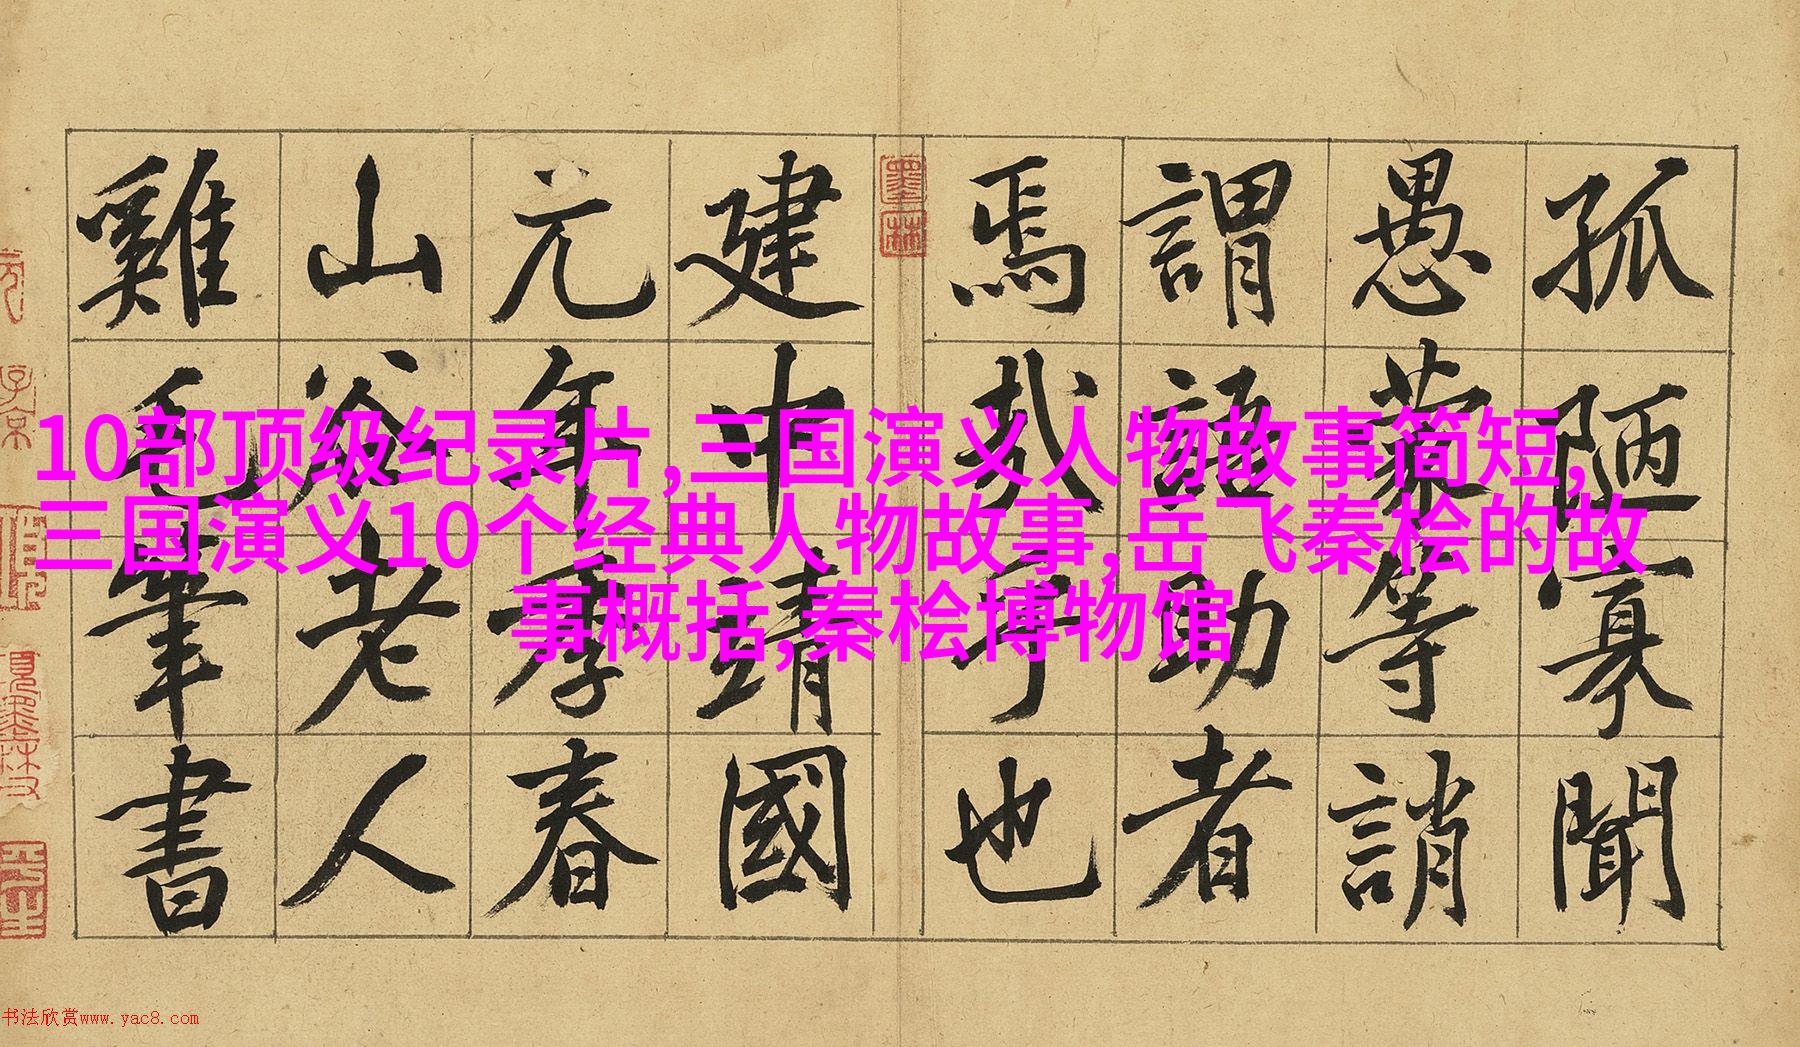 孤陋寡聞
愚蒙等誚
謂語助者
焉哉乎也
建中靖國
元年季春
山谷老人
雞毛筆書
10部顶级纪录片,三国演义人物故事简短,
三国演义10个经典人物故事,岳飞秦桧的故
事概括,秦桧博物馆
墨林
书法欣赏www.yac8.com